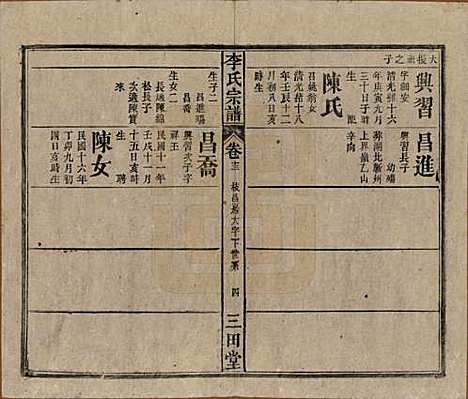 大振三之子
興習
字湘安
清光緒十六
年庚寅九月
三十日子時
生
陳氏
呂姚翁女
清光緒十八
年壬辰十二
月初八日亥
時生
生子二
昌進瑒
昌喬
生女二
長適陳錦
松長子
次適陳實
來
昌進
興習長子
幼瑒
葬湖北新州
上界嶺乙山
辛向
昌喬
興習次子字
祥玉
民國十一年
壬戌十一月
十五日亥時
生
聘
陳女
民國十六年
丁卯九月初
四日亥時生
李氏宗譜
卷三
枝昌
大字下世系
四
三田堂